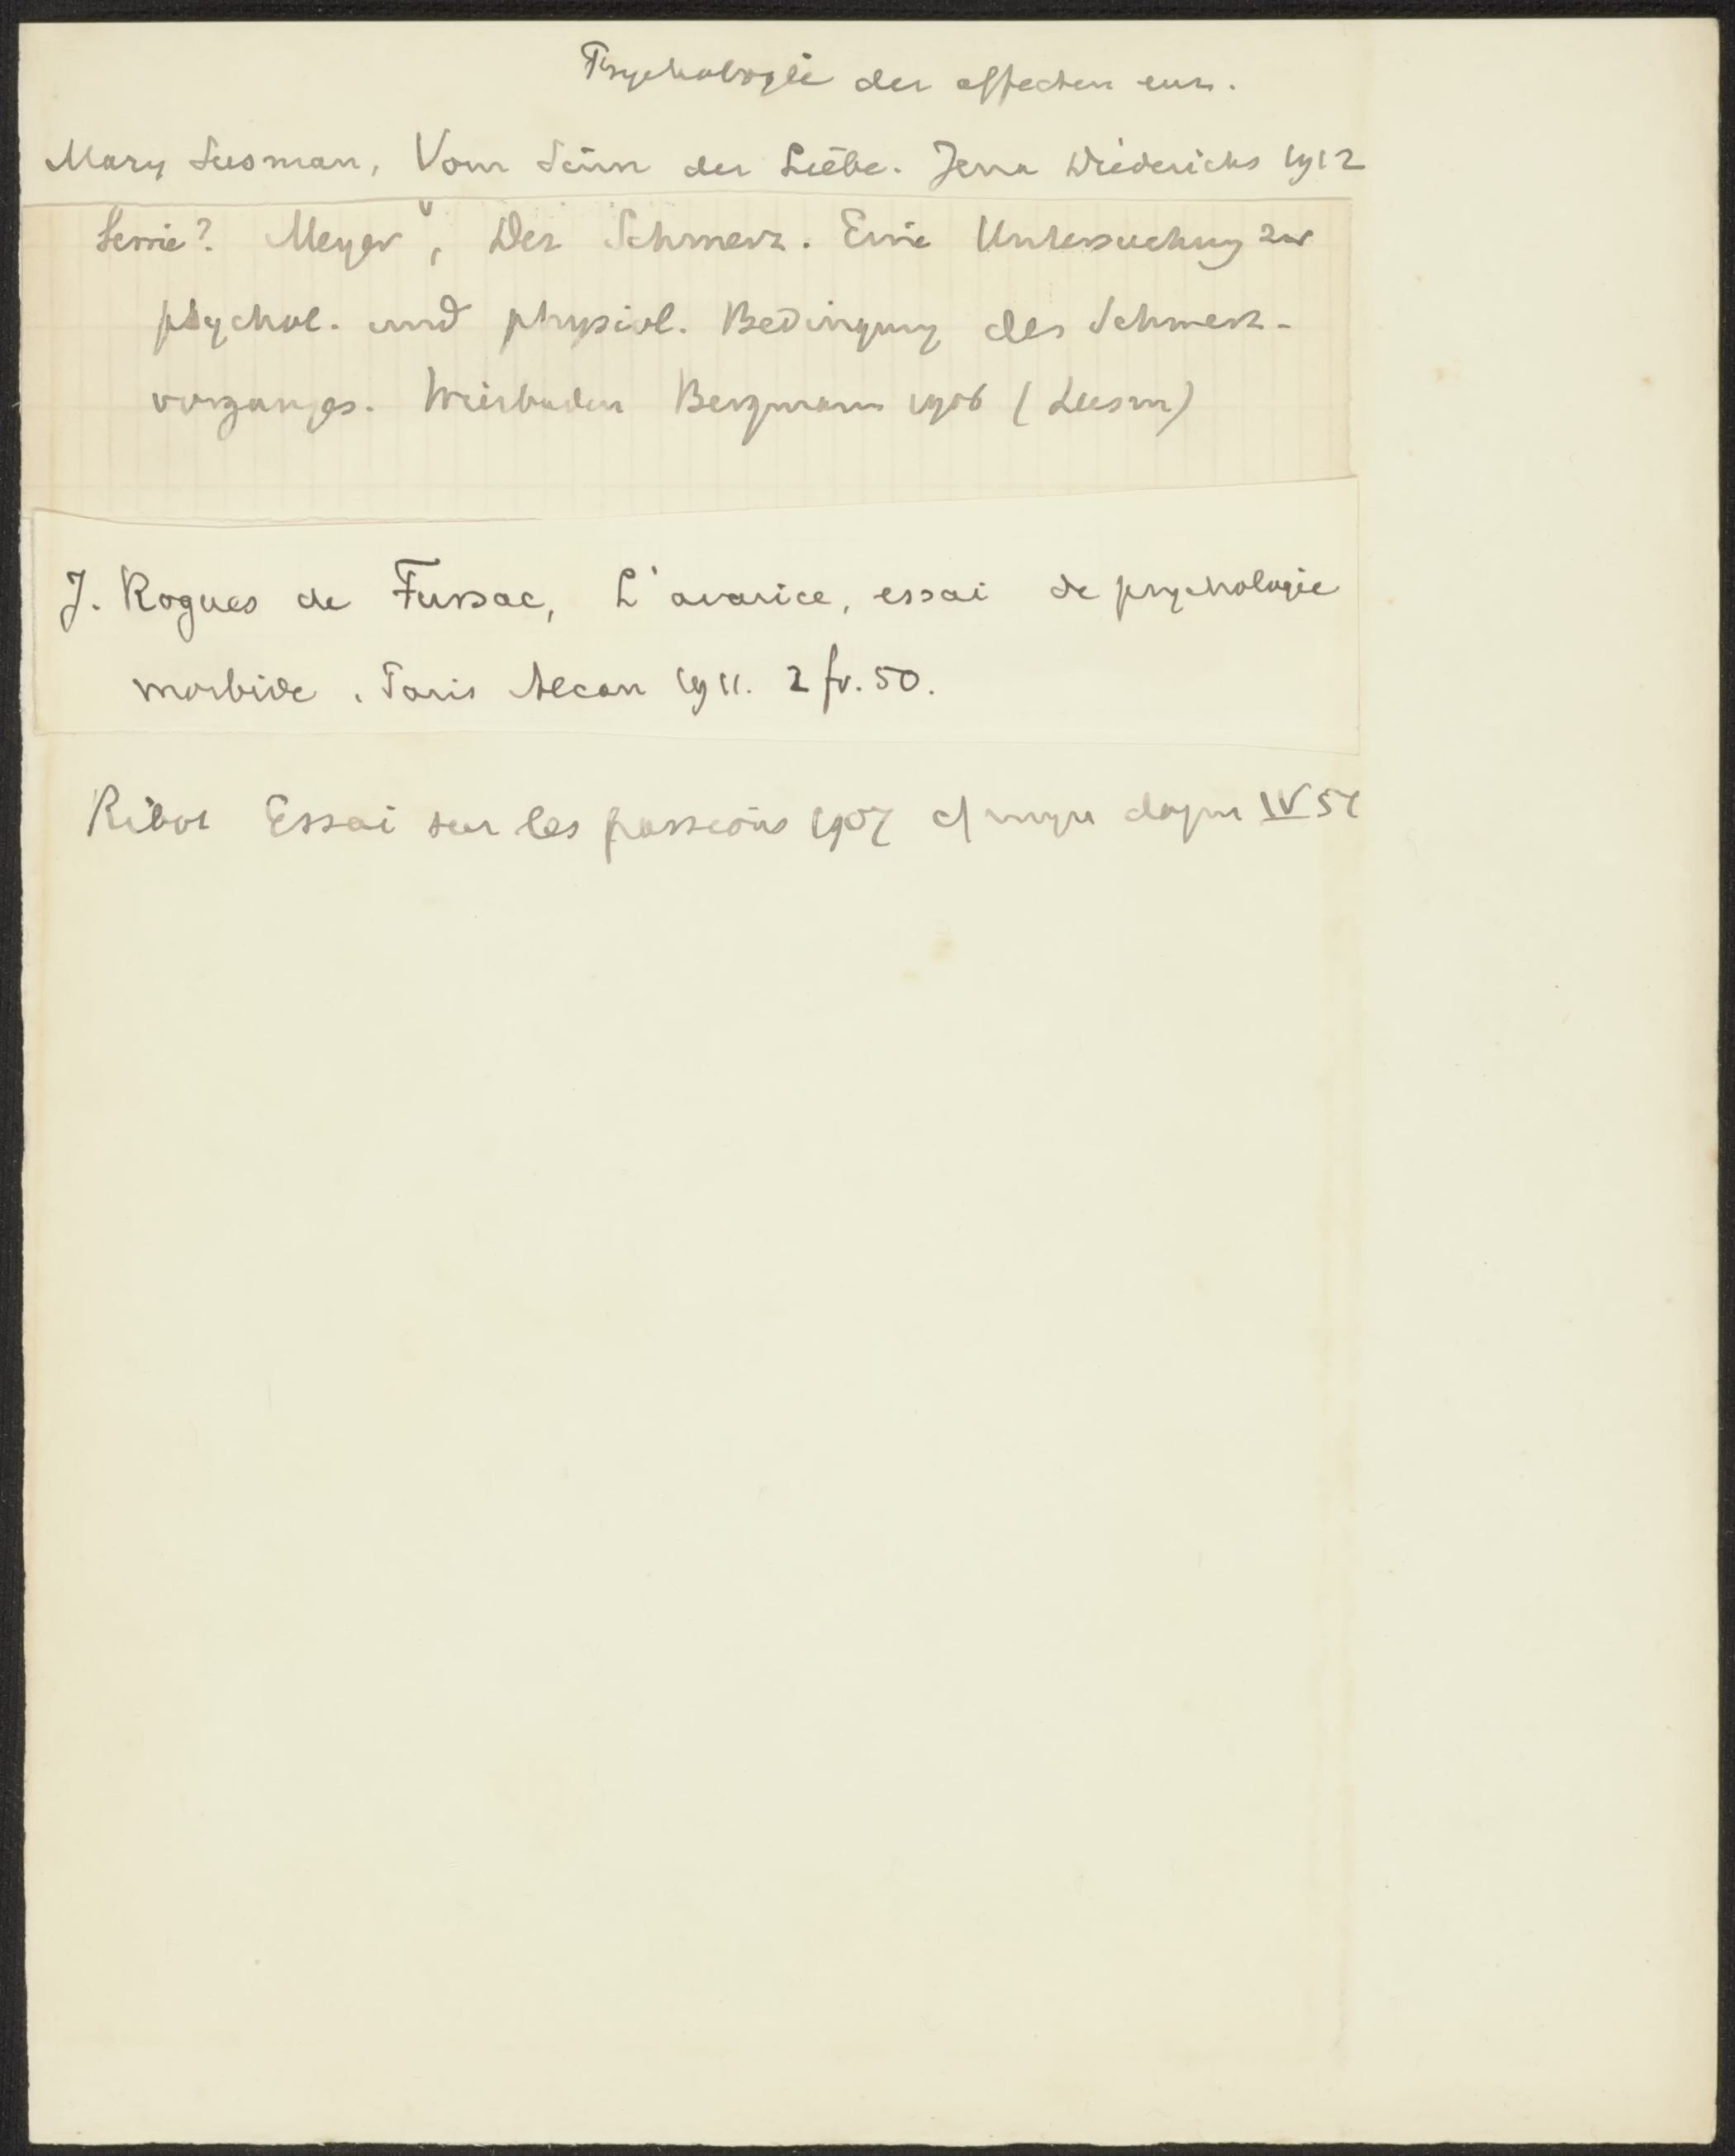 Psychologie der affecten enz.
Mary Susman, Vom Sinn der Liebe. Jena Diederichs 1912
Semi? Meyer, Der Schmerz. Eine Untersuchung zur
psychol. und physiol. Bedingung des Schmerz-
vorganges. Wiesbaden Bergmann 1906 (Leesm)
J. Rogues de Fursac, L'avarice, essai de psychologie
morbide. Paris Alcan 1911. 2 fr. 50.
Ribot Essai sur les passions 1907 cf IV 57